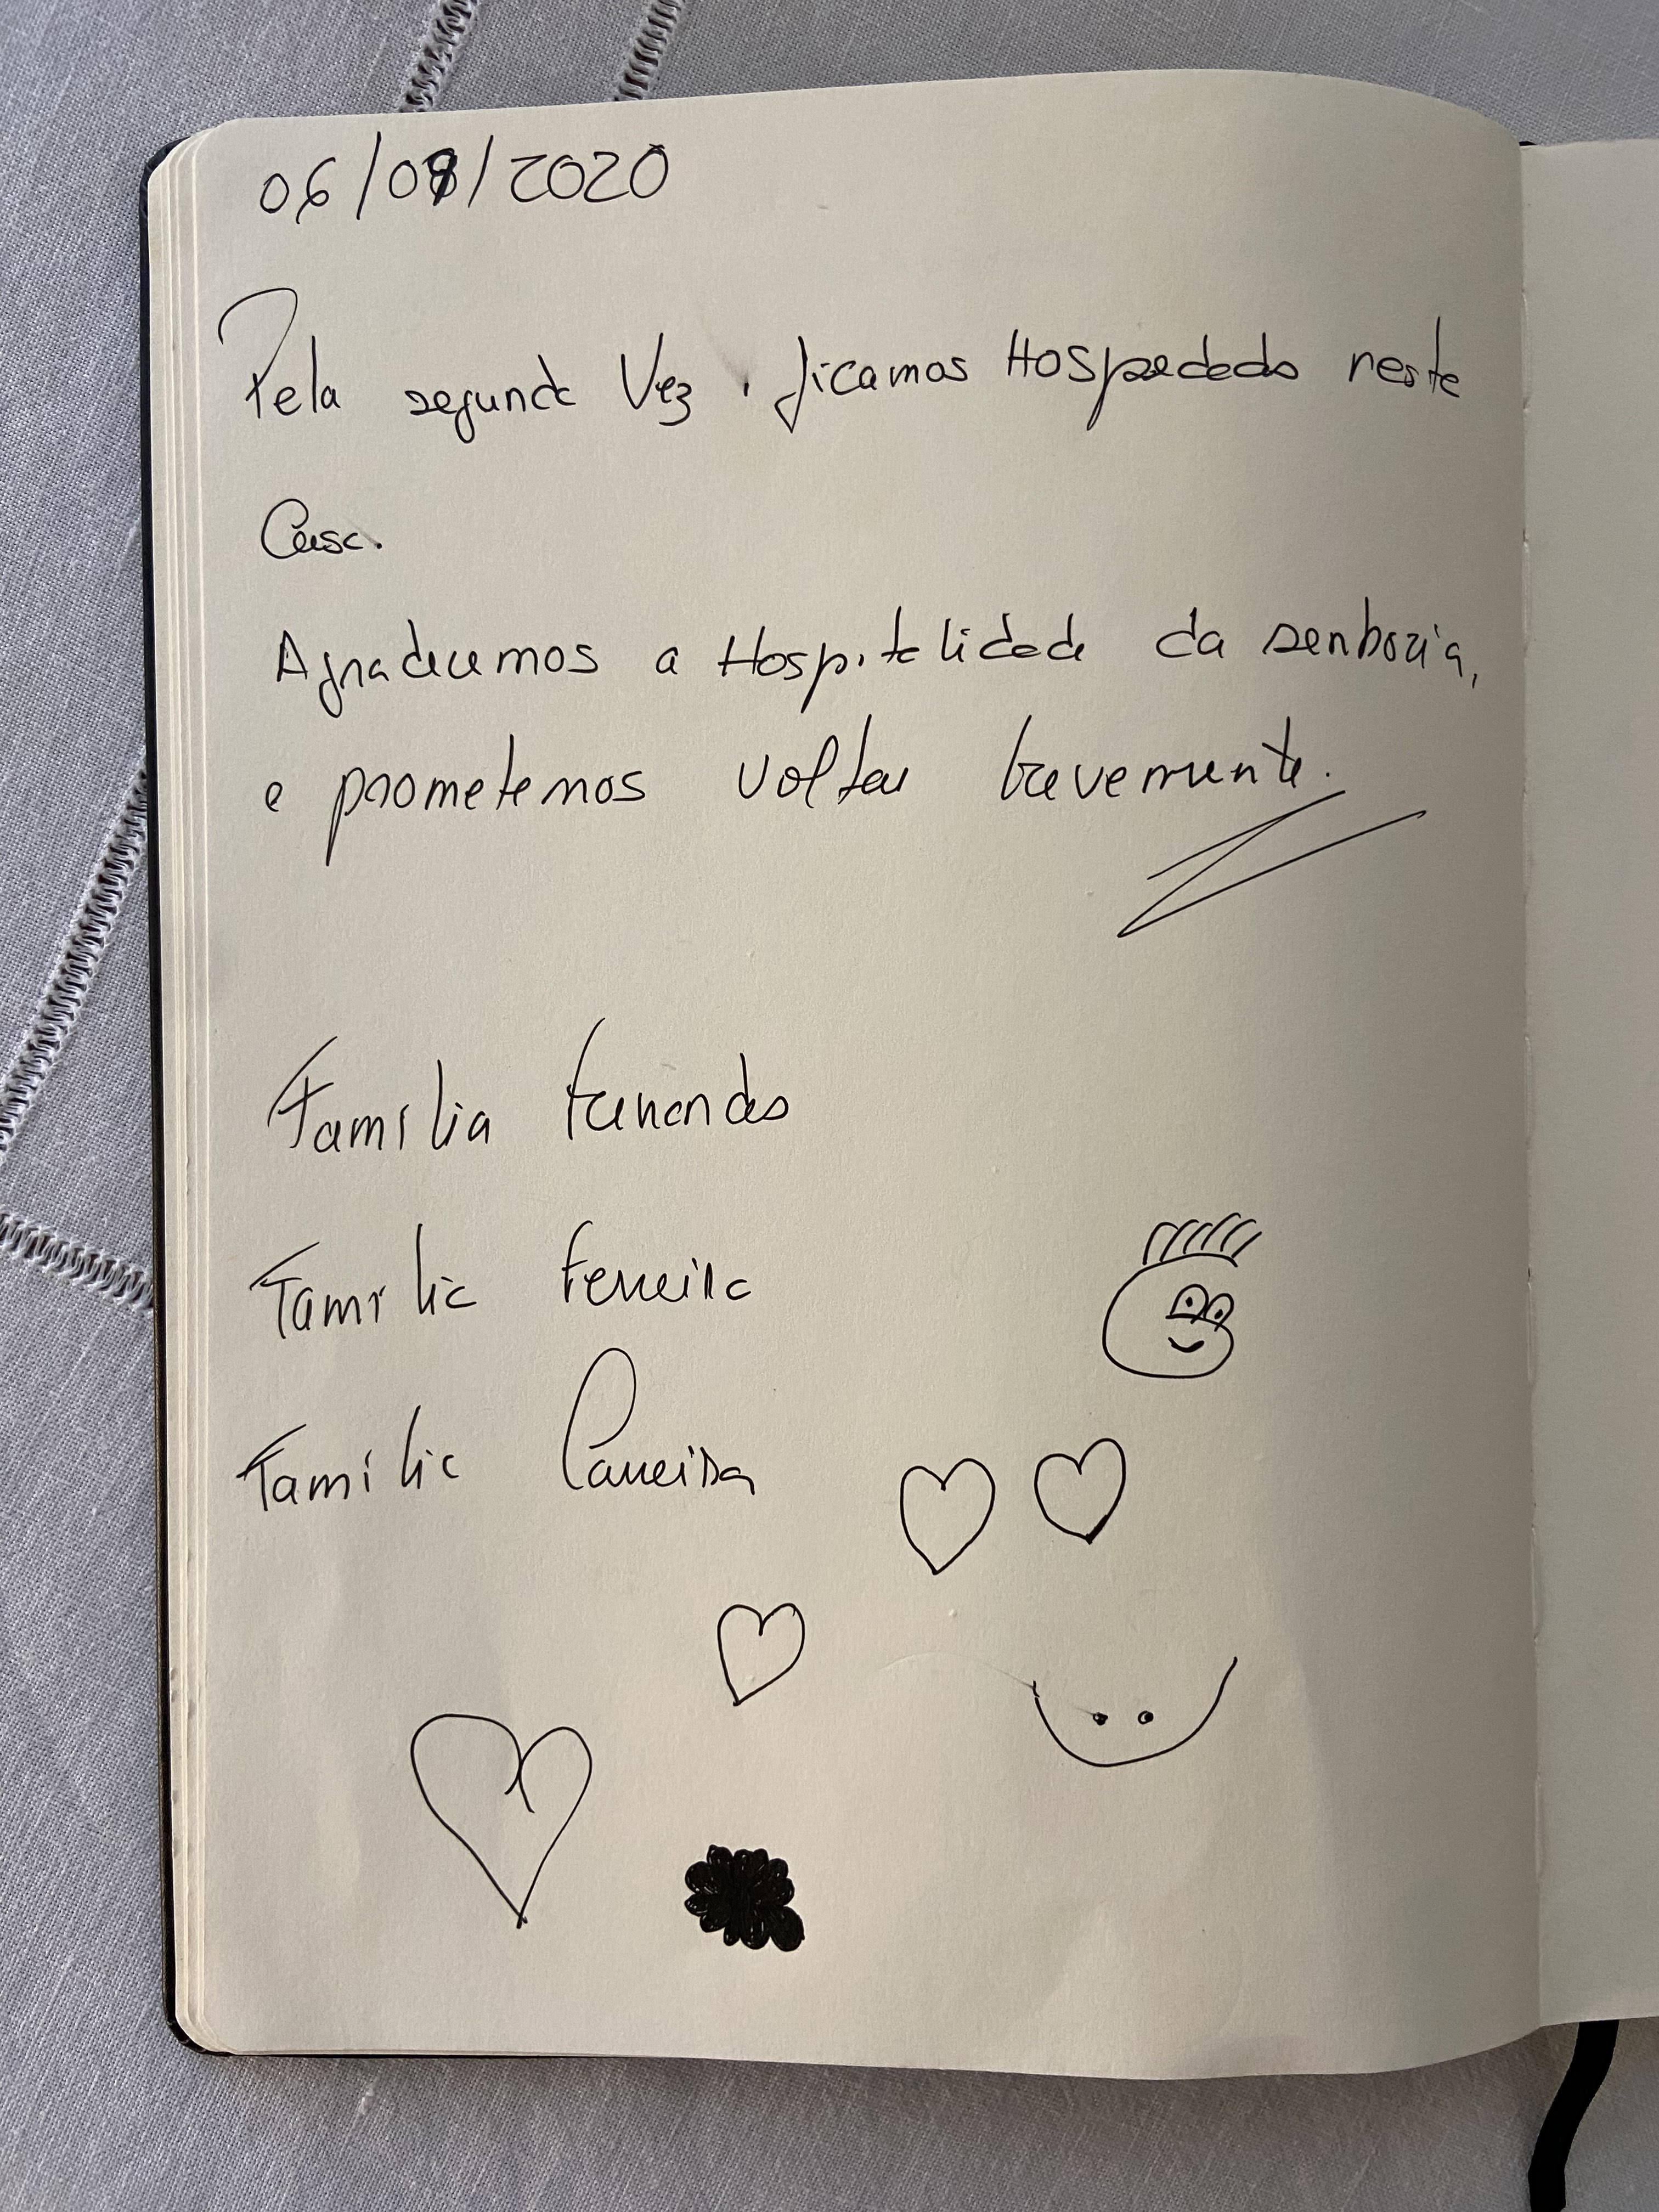 06/08/2020
Pela segunda Vez, ficamos Hospedados neste
Casa.
Agradecemos a Hospitalidade da senhoria,
e prometemos voltar brevemente.
Família Fernandes
Família Ferreira
Família Carreira